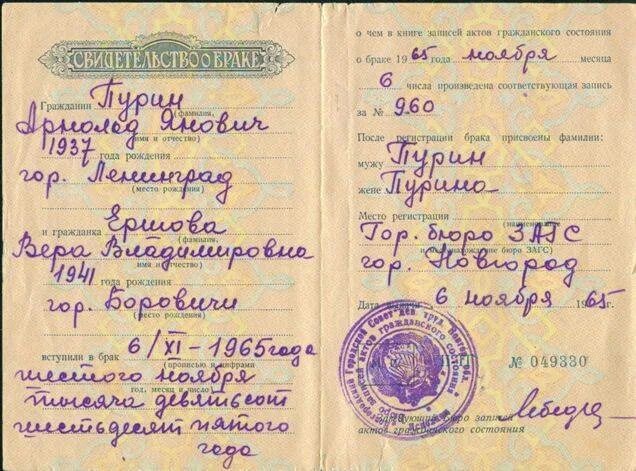 СВИДЕТЕЛЬСТВО О БРАКЕ
Гражданин Пурин
(фамилия,
Арнольд Янович
имя и отчество)
1937 года рождения
гор. Ленинград
(место рождения)
и гражданка Ершова
(фамилия,
Вера Владимировна
имя и отчество)
1941 года рождения
гор. Боровичи
(место рождения)
вступили в брак 6/XI-1965 года
(прописью и цифрами
шестого ноября
год, месяц и число)
тысяча девятьсот
шестьдесят пятого
года
о чем в книге записей актов гражданского состояния
о браке 1965 года ноября месяца
6 числа произведена соответствующая запись
за № 960
После регистрации брака присвоены фамилии:
мужу Пурин
жене Пурина
Место регистрации
(наименование
Гор. бюро ЗАГС
и местонахождение бюро ЗАГС)
гор. Новгород
Дата выдачи 6 ноября 1965 г.
№ 049330
Заведующий бюро записи
актов гражданского состояния